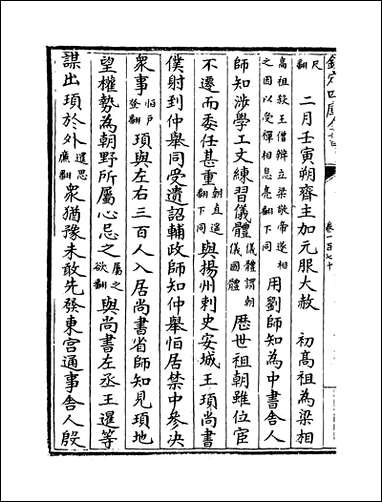 欽定四庫全書
卷一百七十
尺翻
二月壬寅朔齊主加元服大赦　初髙祖為梁相
髙祖殺王僧辯立梁敬帝遂相之因以受禪相息亮翻下同
用劉師知為中書舍人
師知涉學工文練習儀體
儀體謂朝儀國體
歴世祖朝雖位宦
不遷而委任甚重
朝直遥翻下同
與揚州刺史安城王頊尚書
僕射到仲舉同受遺詔輔政師知仲舉恒居禁中參決
衆事
恒户登翻
頊與左右三百人入居尚書省師知見頊地
望權勢為朝野所屬心忌之
屬之欲翻
與尚書左丞王暹等
謀出頊於外
暹思亷翻
衆猶豫未敢先發東宫通事舍人殷